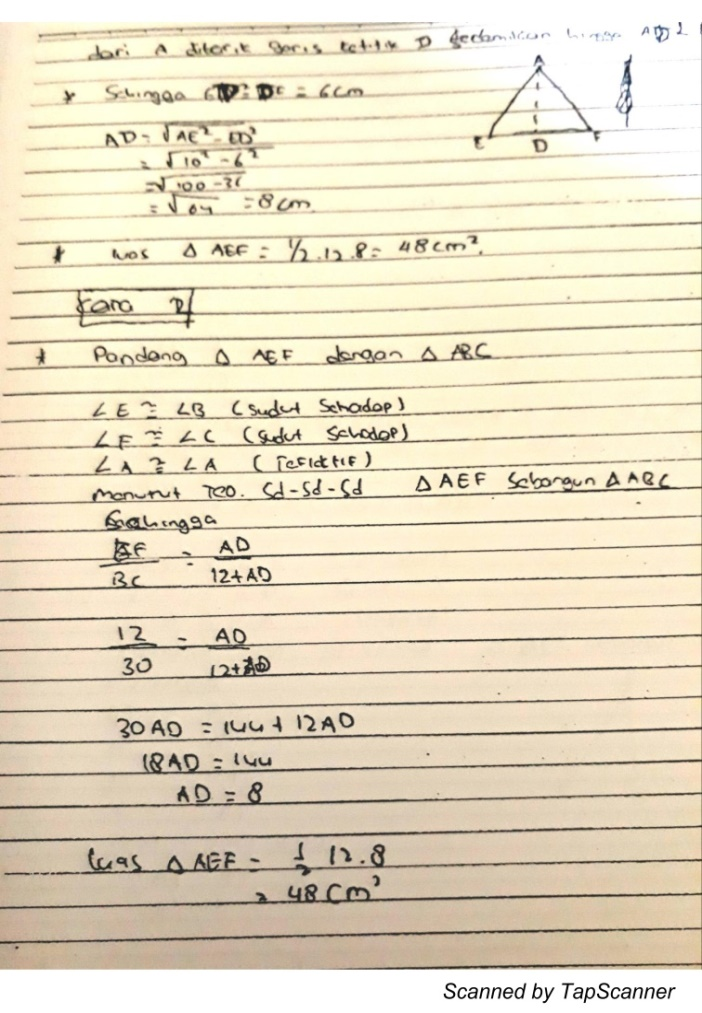 dari A ditarik garis ketitik D sedemikian hingga AD ⊥
A
E D F
* Sehingga ED = DF = 6cm
AD = √AE² - ED²
= √10² - 6²
= √100 - 36
= √64 = 8cm.
* luas Δ AEF = 1/2 . 12 . 8 = 48cm².
Cara 2
* Pandang Δ AEF dengan Δ ABC
∠E ≅ ∠B (sudut sehadap)
∠F ≅ ∠C (sudut sehadap)
∠A ≅ ∠A (reflektif)
Menurut Teo. Sd-Sd-Sd Δ AEF Sebangun Δ ABC
Sehingga
EF/BC = AD/12+AD
12/30 = AD/12+AD
30 AD = 144 + 12 AD
18 AD = 144
AD = 8
luas Δ AEF = 1/2 12.8
= 48 Cm²
Scanned by TapScanner